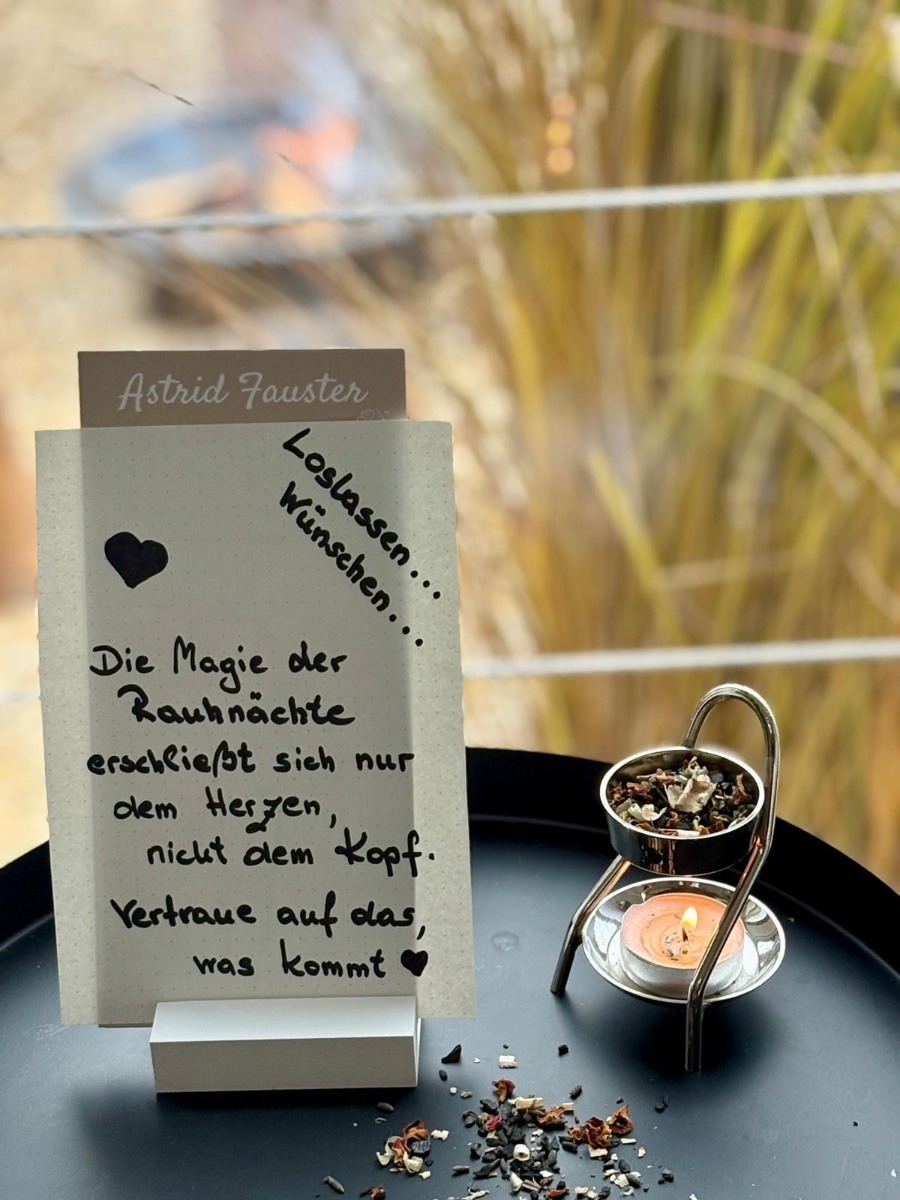 Astrid Fauster
Loslassen...
Wünschen...
Die Magie der
Rauhnächte
erschließt sich nur
dem Herzen,
nicht dem Kopf.
Vertraue auf das,
was kommt